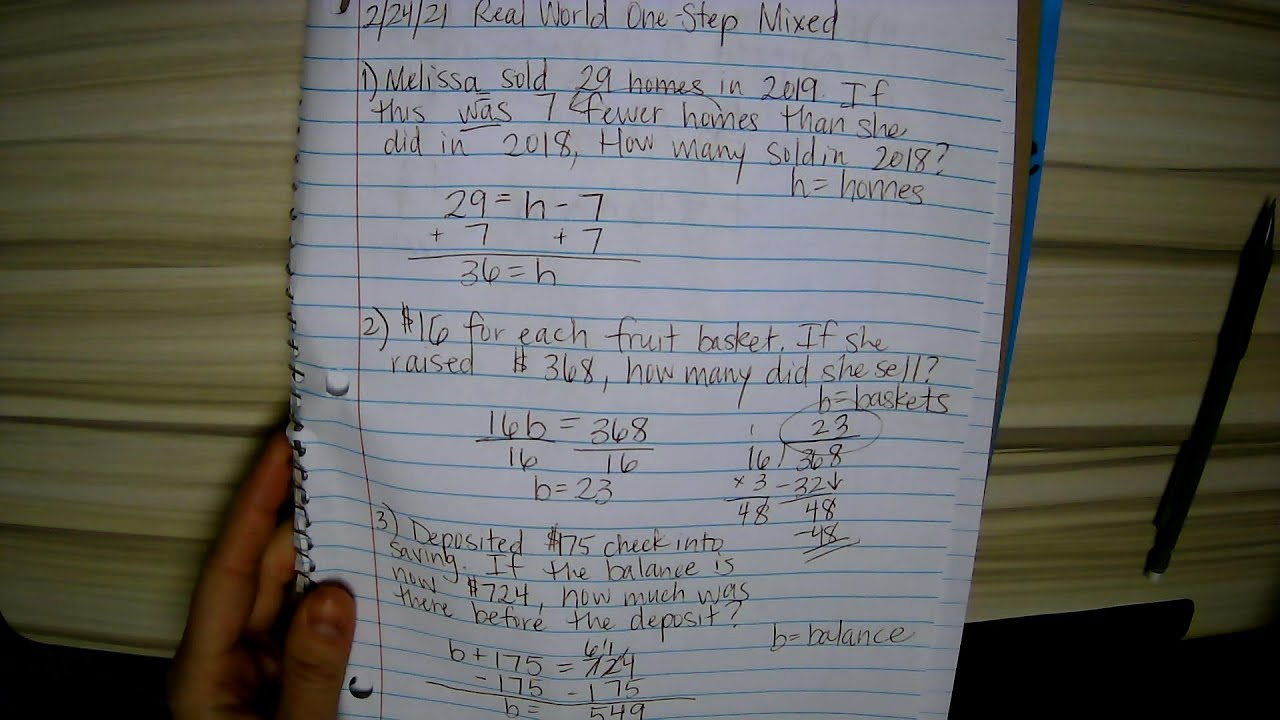 2/24/21 Real World One-Step Mixed
1) Melissa sold 29 homes in 2019. If
this was 7 fewer homes than she
did in 2018, How many sold in 2018?
h = homes
29 = h - 7
+ 7 + 7
36 = h
2) $16 for each fruit basket. If she
raised $368, how many did she sell?
b = baskets
16b = 368
16 16
b = 23
1 23
16 368
x 3 - 32↓
48 48
-48
3) Deposited $175 check into
saving. If the balance is
now $724, how much was
there before the deposit?
b = balance
6 11
b + 175 = 724
- 175 - 175
b = 549